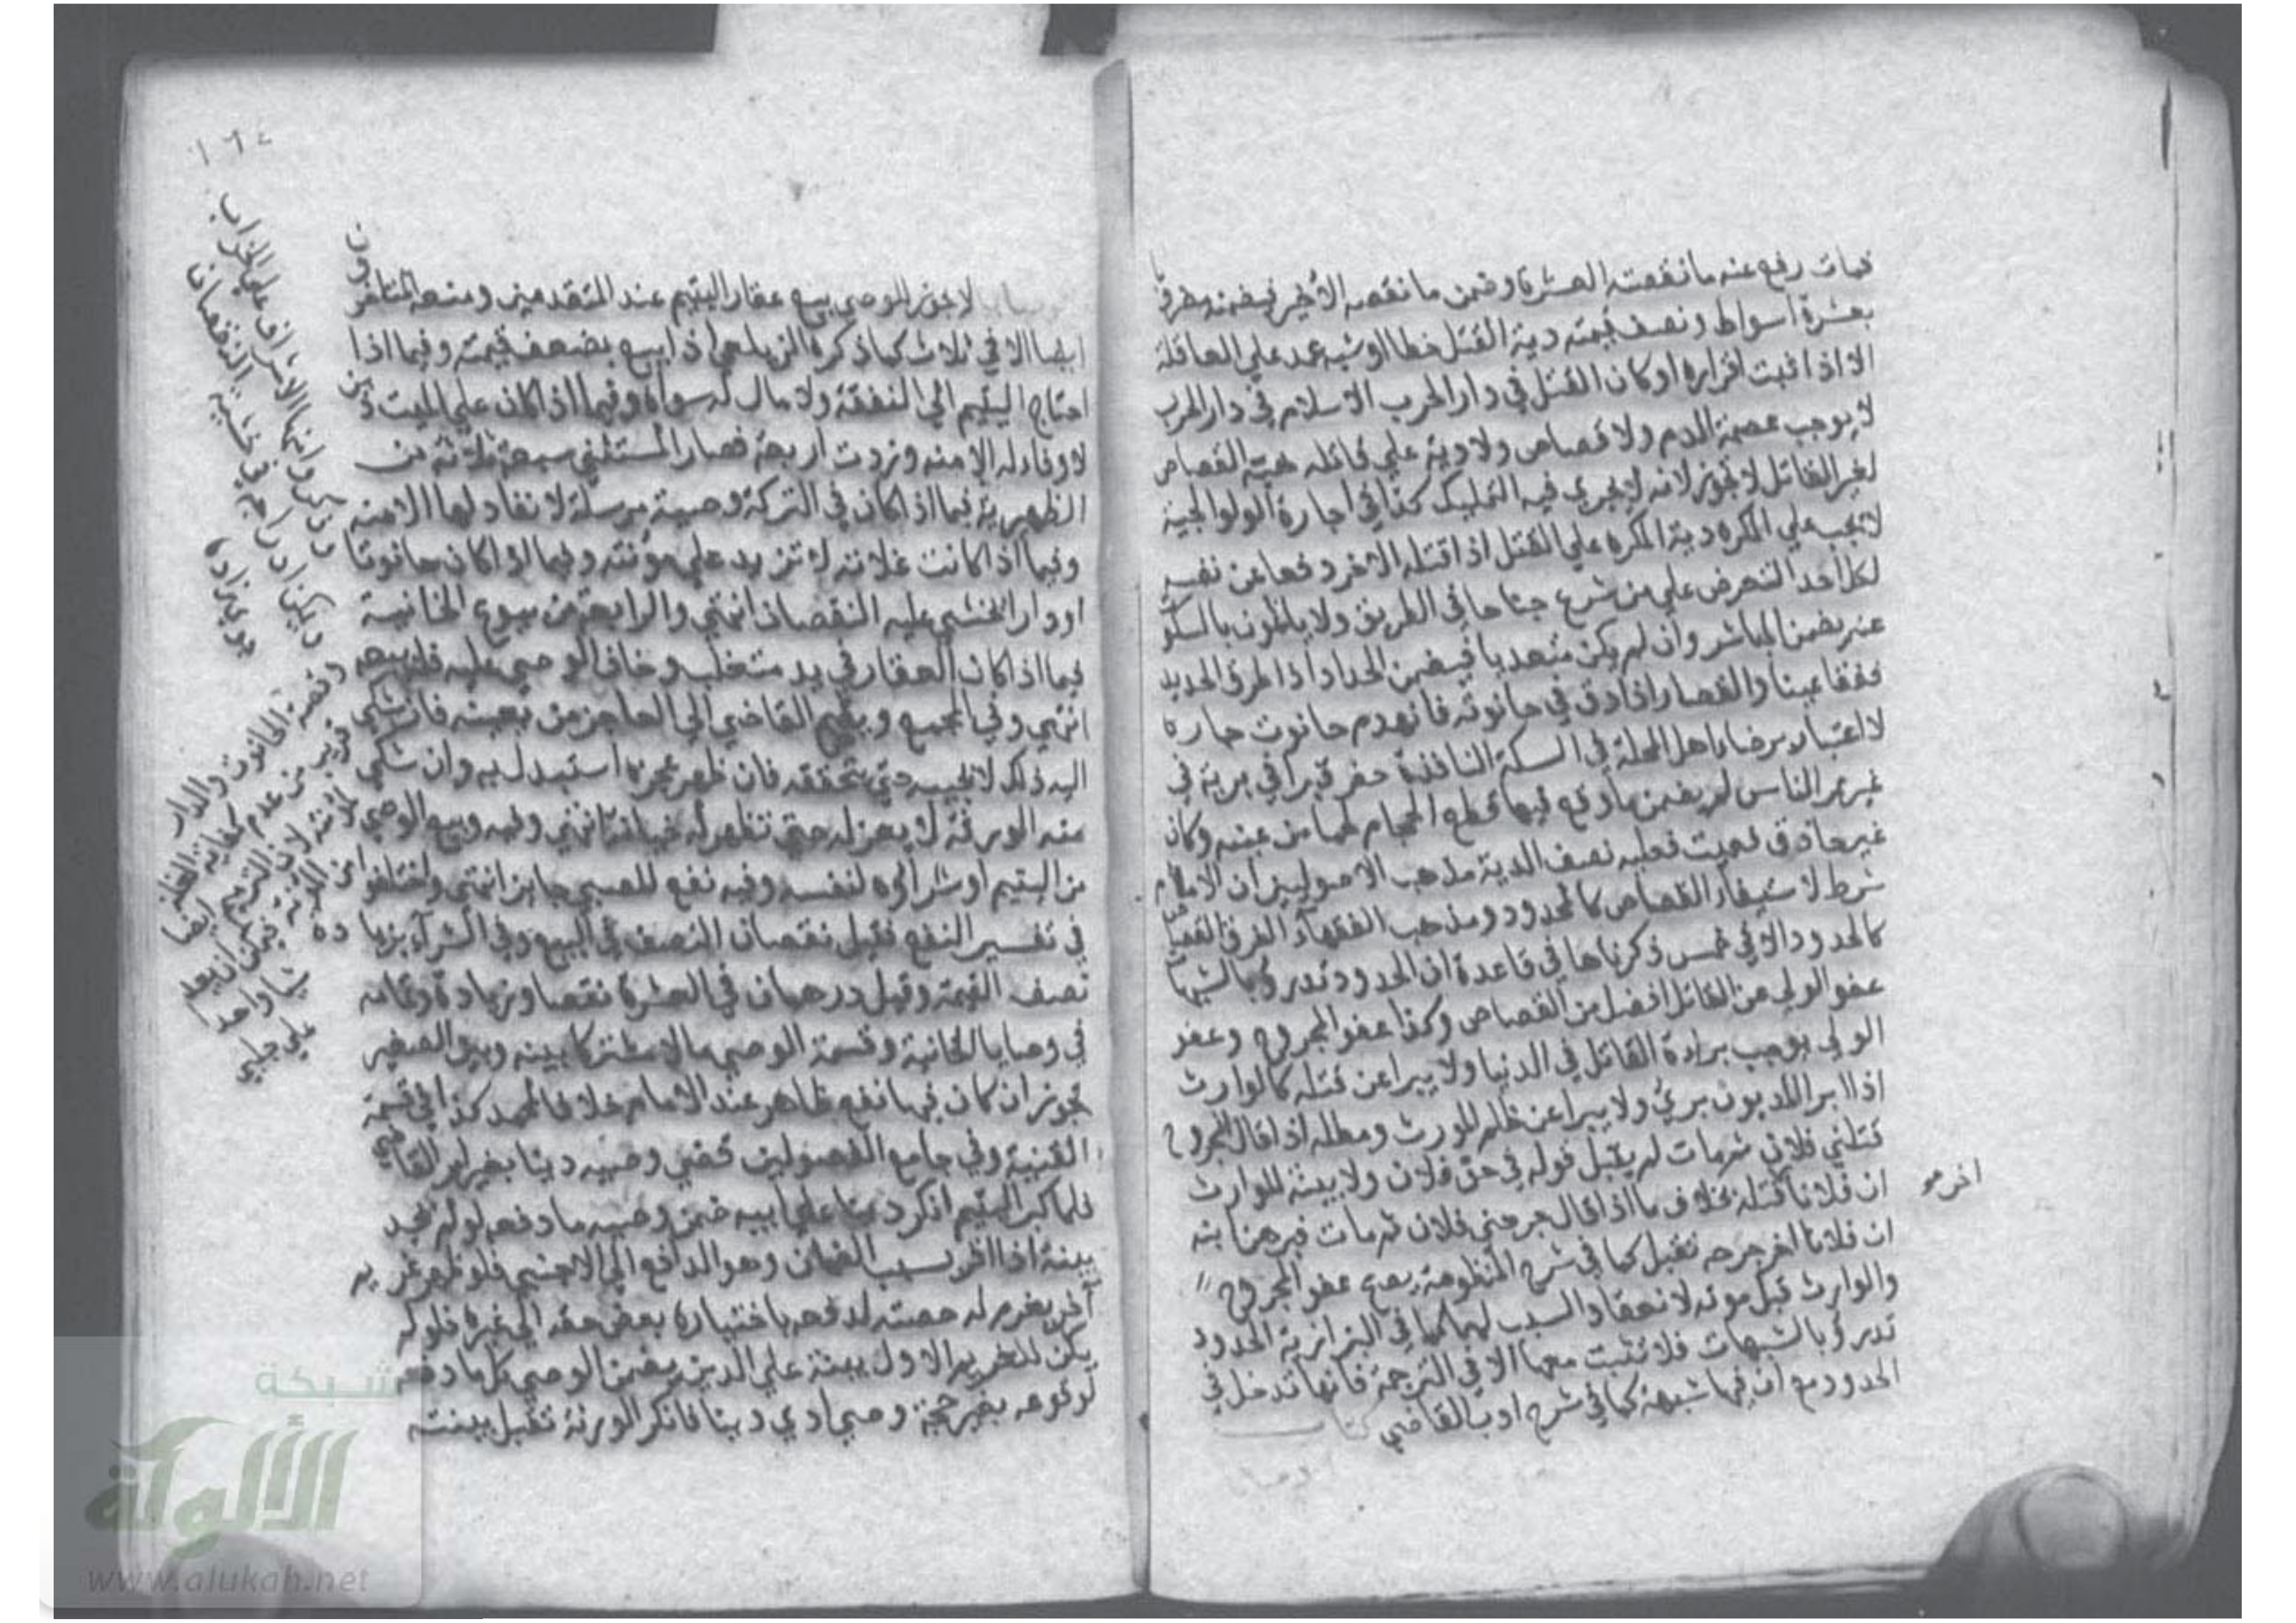 فمات رفع عنه ما نقصته العشرة وضمن ما نقصه الاخير فيضمنه مضروبا
بعشرة اسواط ونصف قيمته دية القتل خطا او شبه عمد على العاقلة
الا اذا ثبت باقراره او كان القتل في دار الحرب الاسلام في دار الحرب
لا يوجب عصمة الدم ولا قصاص ولا دية على قاتله هبة القصاص
لغير القاتل لا تجوز لانه لا يجري فيه التمليك كذا في اجارة الولوالجية
لا تجب على المكره دية المكره على القتل اذا قتله الاخر دفعا عن نفسه
لكل احد التعرض على من شرع جناحا في الطريق ولا ياثمون بالسكوت
عنه يضمن المباشر وان لم يكن متعديا فيضمن الحداد اذا طرق الحديد
ففقا عينا والقصار اذا دق في حانوته فانهدم حانوت جاره
لا اعتبار برضا اهل المحلة في السكة النافذة حفر قبرا في برية في
غير ممر الناس لم يضمن ما وقع فيها قطع الحجام لحما من عينه وكان
غير حاذق فعميت فعليه نصف الدية مذهب الاصوليين ان الامام
شرط لاستيفاء القصاص كالحدود ومذهب الفقهاء الفرق القصاص
كالحدود الا في خمس ذكرناها في قاعدة ان الحدود تدرؤ بالشبهات
عفو الولي عن القاتل افضل من القصاص وكذا عفو المجروح وعفو
الولي يوجب براءة القاتل في الدنيا ولا يبرا عن قتله كالوارث
اذا ابرا المديون بري ولا يبرا عن ظلم المورث ومطله اذا قال المجروح
قتلني فلان ثم مات لم يقبل قوله في حق فلان ولا بينة للوارث
ان فلانا قتله بخلاف ما اذا قال جرحني فلان ثم مات فبرهن ابنه
ان فلانا اخر جرحه تقبل كما في شرح المنظومة يصح عفو المجروح
والوارث قبل موته لانعقاد السبب لهما كما في البزازية الحدود
تدرؤ بالشبهات فلا تثبت معها الا في الترجمة فانها تدخل في
الحدود مع ان فيها شبهة كما في شرح ادب القاضي كتاب
١٦٤
لا يجوز للوصي بيع عقار اليتيم عند المتقدمين ومنعه المتاخرون
ايضا الا في ثلاث كما ذكره الزيلعي اذا بيع بضعف قيمته وفيما اذا
احتاج اليتيم الى النفقة ولا مال له سواه وفيما اذا كان على الميت دين
لا وفاء له الا منه وزدت اربعة فصار المستثنى سبعة ثلاثة من
الظهيرية فيما اذا كان في التركة وصية مرسلة لا نفاد لها الا منه
وفيما اذا كانت غلاته لا تزيد على مؤنته وفيما اذا كان حانوتا
او دارا يخشى عليه النقصان انتهى والرابعة من بيوع الخانية
فيما اذا كان العقار في يد متغلب وخاف الوصي عليه فله بيعه
انتهى وفي المجمع ويضم القاضي الى العاجز من يعينه فان شكى
اليه ذلك لا يجيبه حتى يتحققه فان ظهر عجزه استبدل به وان شكى
منه الورثة لا يعزله حتى تظهر له خيانة انتهى وفيه وبيع الوصي
من اليتيم او شراؤه لنفسه وفيه نفع للصبي جايز انتهى واختلفوا
في تفسير النفع فقيل نقصان النصف في البيع وفي الشراء بزيادة
نصف القيمة وقيل درهمان في العشرة نقصا وزيادة وتمامه
في وصايا الخانية وقسمة الوصي مالا مشتركا بينه وبين الصغير
تجوز ان كان فيها نفع ظاهر عند الامام خلافا لمحمد كذا في قسمة
القنية وفي جامع الفصولين قضى وصيه دينا بغير امر القاضي
فلما كبر اليتيم انكر دينا على ابيه ضمن وصيه ما دفعه لو لم يجد
بينة اذا اقر بسبب الضمان وهو الدافع الى الاجنبي فلو ظهر غريم
اخر يغرم له حصته لدفعه باختياره بعض حقه الى غيره فلو لم
يكن للغريم الاول بينة على الدين يضمن الوصي كل ما دفع
لوقوعه بغير حجة وصي ادى دينا فانكر الورثة تقبل بينته
شبكة
الألوكة
www.alukah.net